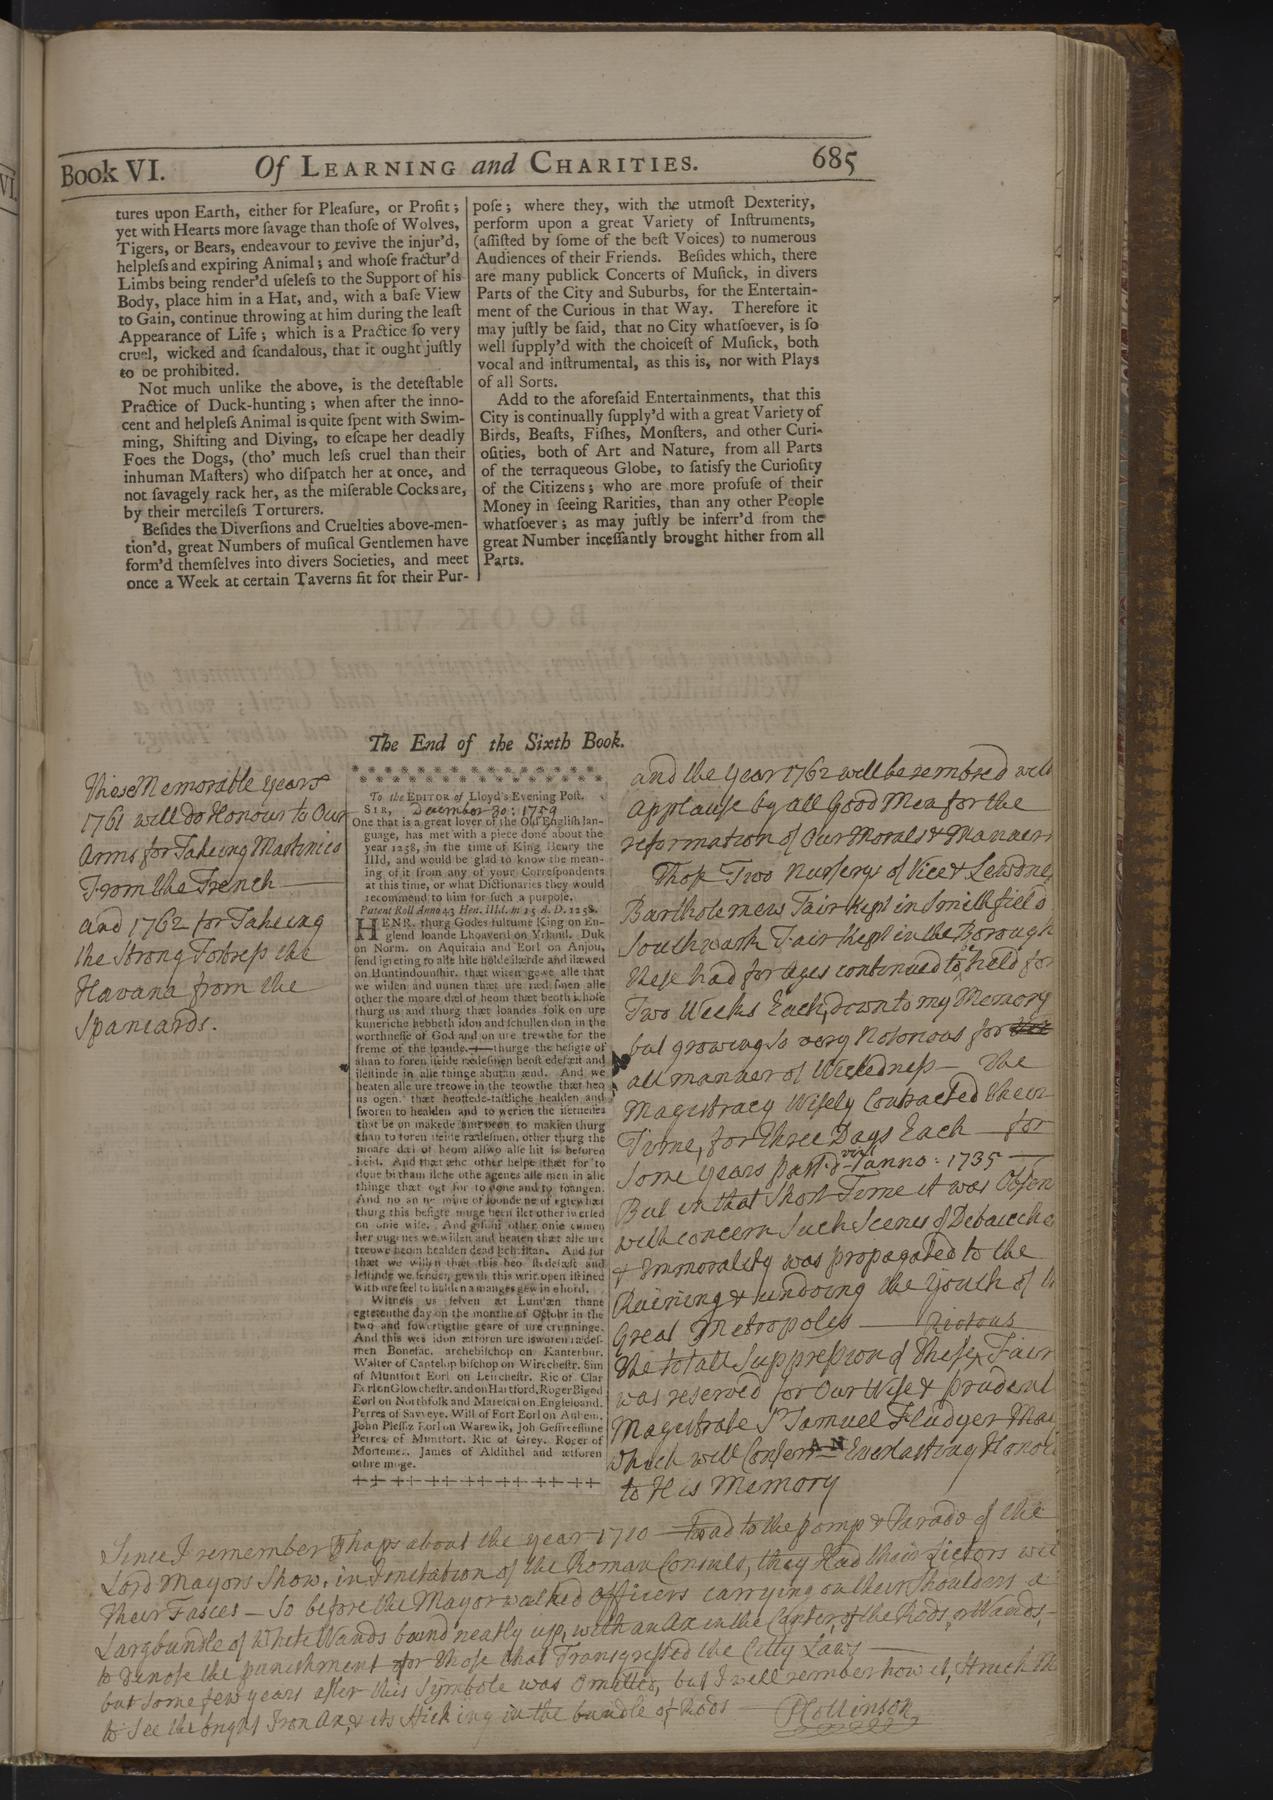 Book VI. Of LEARNING and CHARITIES. 685
tures upon Earth, either for Pleaſure, or Profit;
yet with Hearts more ſavage than thoſe of Wolves,
Tigers, or Bears, endeavour to revive the injur'd,
helpleſs and expiring Animal; and whoſe fractur'd
Limbs being render'd uſeleſs to the Support of his
Body, place him in a Hat, and, with a baſe View
to Gain, continue throwing at him during the leaſt
Appearance of Life; which is a Practice ſo very
cruel, wicked and ſcandalous, that it ought juſtly
to be prohibited.
Not much unlike the above, is the deteſtable
Practice of Duck-hunting; when after the inno-
cent and helpleſs Animal is quite ſpent with Swim-
ming, Shifting and Diving, to eſcape her deadly
Foes the Dogs, (tho' much leſs cruel than their
inhuman Maſters) who diſpatch her at once, and
not ſavagely rack her, as the miſerable Cocks are,
by their mercileſs Torturers.
Beſides the Diverſions and Cruelties above-men-
tion'd, great Numbers of muſical Gentlemen have
form'd themſelves into divers Societies, and meet
once a Week at certain Taverns fit for their Pur-
poſe; where they, with the utmoſt Dexterity,
perform upon a great Variety of Inſtruments,
(aſſiſted by ſome of the beſt Voices) to numerous
Audiences of their Friends. Beſides which, there
are many publick Concerts of Muſick, in divers
Parts of the City and Suburbs, for the Entertain-
ment of the Curious in that Way. Therefore it
may juſtly be ſaid, that no City whatſoever, is ſo
well ſupply'd with the choiceſt of Muſick, both
vocal and inſtrumental, as this is, nor with Plays
of all Sorts.
Add to the aforeſaid Entertainments, that this
City is continually ſupply'd with a great Variety of
Birds, Beaſts, Fiſhes, Monſters, and other Curi-
oſities, both of Art and Nature, from all Parts
of the terraqueous Globe, to ſatisfy the Curioſity
of the Citizens; who are more profuſe of their
Money in ſeeing Rarities, than any other People
whatſoever; as may juſtly be inferr'd from the
great Number inceſſantly brought hither from all
Parts.
The End of the Sixth Book.
These Memorable years
1761 will do Honour to Our
Arms for Takeing Martinico
From the French
and 1762 for Takeing
the Strong Fortress the
Havana from the
Spaniards.
To the EDITOR of Lloyd's Evening Poſt.
SIR, December 30: 1759
One that is a great lover of the Old Engliſh lan-
guage, has met with a piece done about the
year 1258, in the time of King Henry the
IIId, and would be glad to know the mean-
ing of it from any of your Correſpondents
at this time, or what Dictionaries they would
recommend to him for ſuch a purpoſe.
Patent Roll Anno 43 Hen. IIId. m 15 A. D. 1258.
HENR. thurg Godes fultume King on En-
glend loande Lhoaverd on Yrloand. Duk
on Norm. on Aquitain and Eorl on Anjou,
ſend igreting to alle hiſe holde ilærde and ilæwed
on Huntindounſhir. thæt witen gewe alle that
we willen and unnen thæt ure ræd ſmen alle
other the moare dæl of heom thæt beoth ichoſe
thurg us and thurg thæt loandes folk on ure
kuneriche hebbeth idon and ſchullen don in the
worthneſſe of God and on ure treowthe for the
freme of the loande. thurge the beſigte of
than to foren iſeide rædeſmen beoſt edefæſt and
ileſtinde in alle thinge abutan ænd. And we
heaten alle ure treowe in the teowthe thæt heo
us ogen. thæt heoſtede-fæſtliche healden and
ſworen to healden and to werien the iſetneſſes
that be on makede and beon to makien thurg
than to foren iſeide rædeſmen, other thurg the
moare dæl of heom alſwo alſe hit is beforen
iſeid. And thæt æhc other helpe thæt for to
done bitham ilche othe agenes alle men in alle
thinge thæt ogt for to done and to foangen.
And no an
thurg this beſigte muge been ilet other iwerſed
on onie wiſe. And gif oni other onie cumen
her ongenes we willen and heaten thæt alle ure
treowe heom healden dead lich iſtan. And for
thæt we willen thæt this beo ſtedefæſt and
leſtinde we ſenden gewth this writ open iſeined
with ure ſeel to halden amanges gew in ehord.
Witneſs us ſelven æt Lundæn thane
egtetenthe day on the monthe of Octobr in the
two and fowertigthe geare of ure crunninge.
And this wes idon ætforen ure iſworen rædeſ-
men Bonefac. archebiſchop on Kanterbur.
Walter of Cantelop biſchop on Wirecheſtr. Sim
of Muntfort Eorl on Leircheſtr. Ric of Clar
Eorl on Glowcheſtr. and on Hartford. Roger Bigod
Eorl on Northfolk and Mareſcal on Engleloand.
Perres of Savveye. Will of Fort Eorl on Aubem.
John Pleſſiz Eorl on Warewik, Joh Geffreeſſune
Perres of Muntfort. Ric of Grey. Roger of
Mortemer. James of Aldithel and ætforen
othre moge.
and the Year 1762 will be rembred with
applause by all Good Men for the
reformation of Our Morals & Manners
Those Two Nurserys of Vice & Lewdnes
Bartholemews Fair Kept in Smithfield
Southwark Fair Kept in the Borough
these had for ages continued to be held for
Two Weeks Each, down to my Memory
but growing so very Notorious for
all manner of Wickedness — the
Magistracy Wisely Contracted their
Time, for Three Days Each — for
some years past, viz anno: 1735
But in that Short Time it was Obsen
with concern Such Scenes of Debauch
& Immorality was propagated to the
Ruining & undoing the Youth of
Great Metropoles
The totall Suppression of These riotous Fair
was reserved for Our Wise & prudent
Magistrate Sr Samuel Fludyer May
which will Conferr Everlasting Honour
AN
to His Memory
Since I remember phaps about the year 1710 — to the pomp & Parade of the
Lord Mayors Show, in Imitation of the Roman Consuls, they Had their Lictors with
their Fasces — So before the Mayor walked Officers carrying on their Shoulders a
Larg bundle of White Wands bound neatly up, with an Ax in the Center, of the Rods, or Wands,
to Denote the punishment for those that Transgressed the Citty Laws
but some few years after this Symbole was Omitted, but I well remember how it Struck
to See the bright Iron Ax, & its sticking in the bundle of Rods — PCollinson